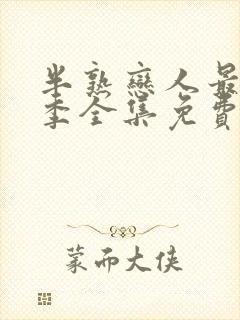 半熟戀人最
季全集免費
蒙而大俠